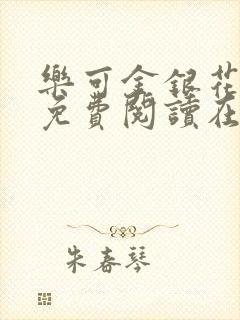 樂可金銀花
免費閱讀在
朱春琴